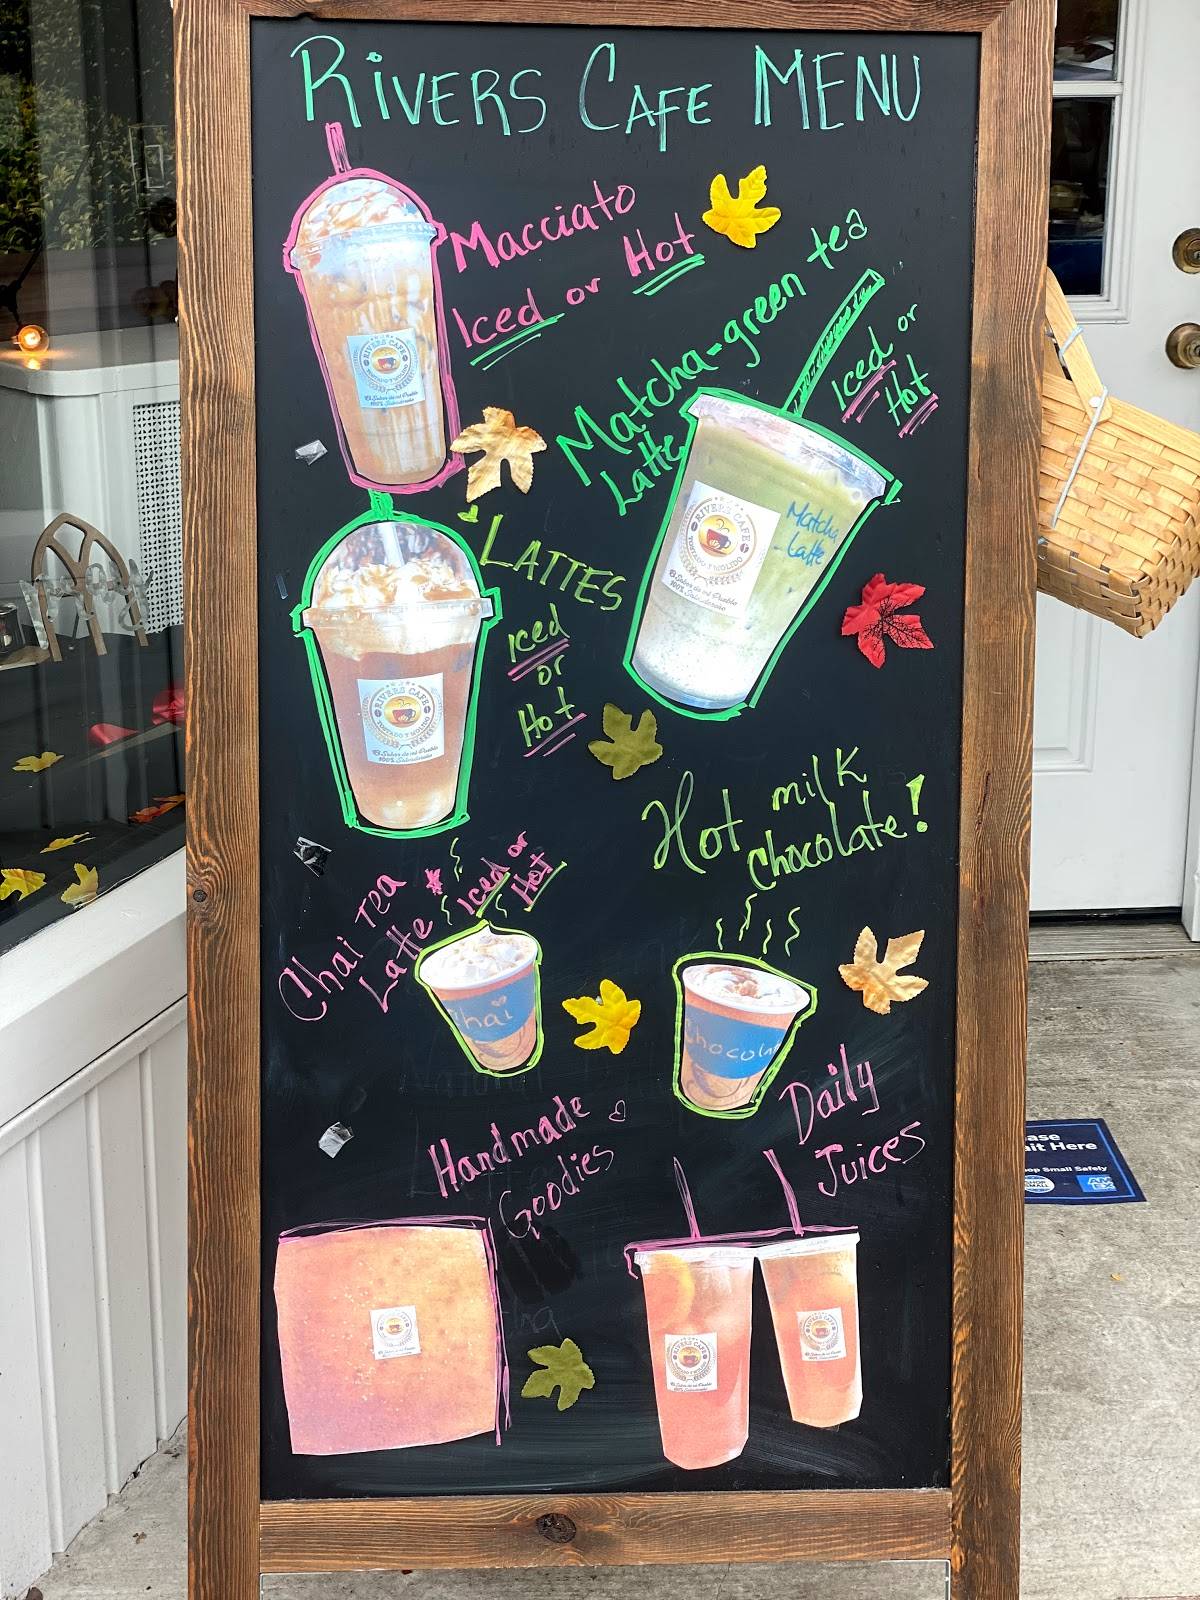 RIVERS CAFE MENU
Macciato
Iced or Hot
Matcha-green tea
Latte
Iced or
Hot
RIVERS CAFE
El Sabor de mi Pueblo
100% Salvadoreno
RIVERS CAFE
TOSTADO Y MOLIDO
El Sabor de mi Pueblo
100% Salvadoreno
Matcha
Latte
LATTES
Iced
or
Hot
RIVERS CAFE
TOSTADO Y MOLIDO
El Sabor de mi Pueblo
100% Salvadoreno
Hot milk
chocolate!
Chai Tea
Latte
Iced or
Hot
Chai
Chocola
Handmade
Goodies
Daily
Juices
RIVERS CAFE
RIVERS CAFE
ase
ait Here
op Small Safely
SHOP
SMALL
AM
EX